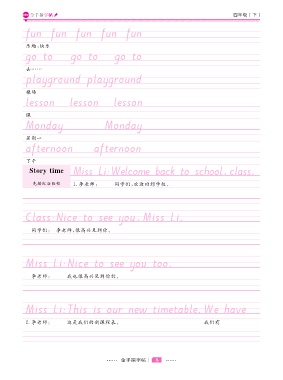 四年级(下)
fun fun fun fun fun
乐趣;快乐
go to go to go to
去……
playground playground
操场
lesson lesson lesson
课
Monday Monday
星期一
afternoon afternoon
下午
Story time
Miss Li: Welcome back to school, class.
1. 李老师: 同学们,欢迎回到学校。
Class: Nice to see you, Miss Li.
同学们: 李老师,很高兴见到您。
Miss Li: Nice to see you too.
李老师: 我也很高兴见到你们。
Miss Li: This is our new timetable. We have
2. 李老师: 这是我们的新课程表。 我们有